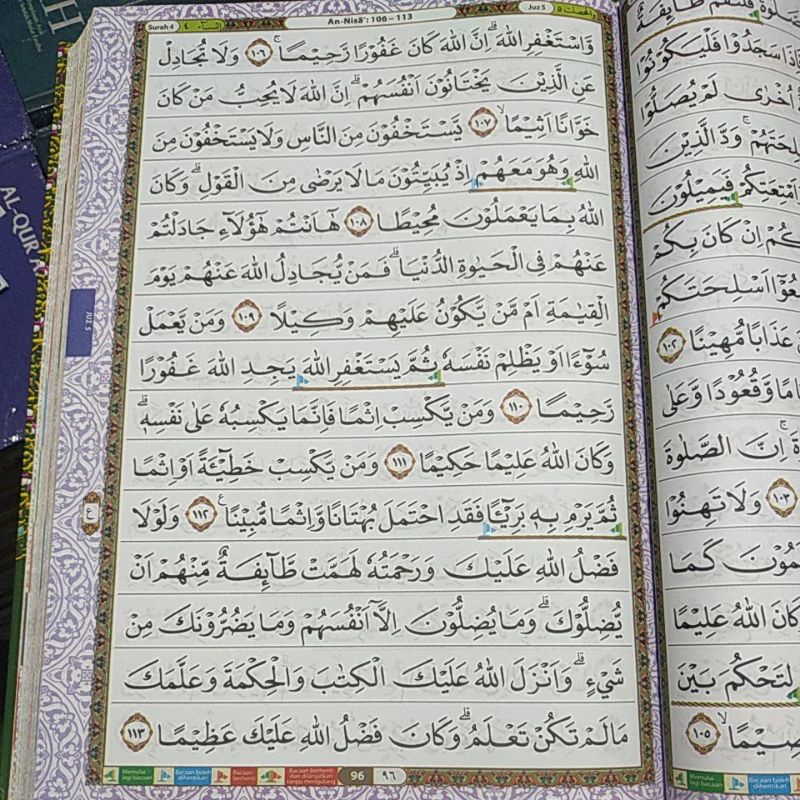 Surah 4
٤ النساء
An-Nisā': 106 – 113
Juz 5
والمحصنات ٥
وَّاسْتَغْفِرِ اللّٰهَ ۗ اِنَّ اللّٰهَ كَانَ غَفُوْرًا رَّحِيْمًا ۚ ١٠٦ وَلَا تُجَادِلْ
عَنِ الَّذِيْنَ يَخْتَانُوْنَ اَنْفُسَهُمْ ۗ اِنَّ اللّٰهَ لَا يُحِبُّ مَنْ كَانَ
خَوَّانًا اَثِيْمًا ۙ ١٠٧ يَّسْتَخْفُوْنَ مِنَ النَّاسِ وَلَا يَسْتَخْفُوْنَ مِنَ
اللّٰهِ وَهُوَ مَعَهُمْ اِذْ يُبَيِّتُوْنَ مَا لَا يَرْضٰى مِنَ الْقَوْلِ ۗ وَكَانَ
اللّٰهُ بِمَا يَعْمَلُوْنَ مُحِيْطًا ١٠٨ هٰٓاَنْتُمْ هٰٓؤُلَاۤءِ جَادَلْتُمْ
عَنْهُمْ فِى الْحَيٰوةِ الدُّنْيَا ۗ فَمَنْ يُّجَادِلُ اللّٰهَ عَنْهُمْ يَوْمَ
الْقِيٰمَةِ اَمْ مَّنْ يَّكُوْنُ عَلَيْهِمْ وَكِيْلًا ١٠٩ وَمَنْ يَّعْمَلْ
سُوْۤءًا اَوْ يَظْلِمْ نَفْسَهٗ ثُمَّ يَسْتَغْفِرِ اللّٰهَ يَجِدِ اللّٰهَ غَفُوْرًا
رَّحِيْمًا ١١٠ وَمَنْ يَّكْسِبْ اِثْمًا فَاِنَّمَا يَكْسِبُهٗ عَلٰى نَفْسِهٖ ۗ
وَكَانَ اللّٰهُ عَلِيْمًا حَكِيْمًا ١١١ وَمَنْ يَّكْسِبْ خَطِيْۤـَٔةً اَوْ اِثْمًا
ثُمَّ يَرْمِ بِهٖ بَرِيْۤـًٔا فَقَدِ احْتَمَلَ بُهْتَانًا وَّاِثْمًا مُّبِيْنًا ࣖ ١١٢ وَلَوْلَا
فَضْلُ اللّٰهِ عَلَيْكَ وَرَحْمَتُهٗ لَهَمَّتْ طَّاۤىِٕفَةٌ مِّنْهُمْ اَنْ
يُّضِلُّوْكَ ۗ وَمَا يُضِلُّوْنَ اِلَّآ اَنْفُسَهُمْ وَمَا يَضُرُّوْنَكَ مِنْ
شَيْءٍ ۗ وَاَنْزَلَ اللّٰهُ عَلَيْكَ الْكِتٰبَ وَالْحِكْمَةَ وَعَلَّمَكَ
مَا لَمْ تَكُنْ تَعْلَمُ ۗ وَكَانَ فَضْلُ اللّٰهِ عَلَيْكَ عَظِيْمًا ١١٣
Memulai lagi bacaan
Bacaan boleh dihentikan
Bacaan berhenti
Bacaan berhenti dan dilanjutkan tanpa mengulang
96
٩٦
JUZ 5
ع
AL-QUR'A
فَاِذَا سَجَدُوْا فَلْيَكُوْنُوْا
اُخْرٰى لَمْ يُصَلُّوْا
وَدَّ الَّذِيْنَ
فَيَمِيْلُوْنَ
اِنْ كَانَ بِكُمْ
اَسْلِحَتَكُمْ
عَذَابًا مُّهِيْنًا ١٠٢
وَّقُعُوْدًا وَّعَلٰى
اِنَّ الصَّلٰوةَ
١٠٣ وَلَا تَهِنُوْا
كَمَا
كَانَ اللّٰهُ عَلِيْمًا
لِتَحْكُمَ بَيْنَ
١٠٥
Memulai lagi bacaan
Bacaan boleh dihentikan